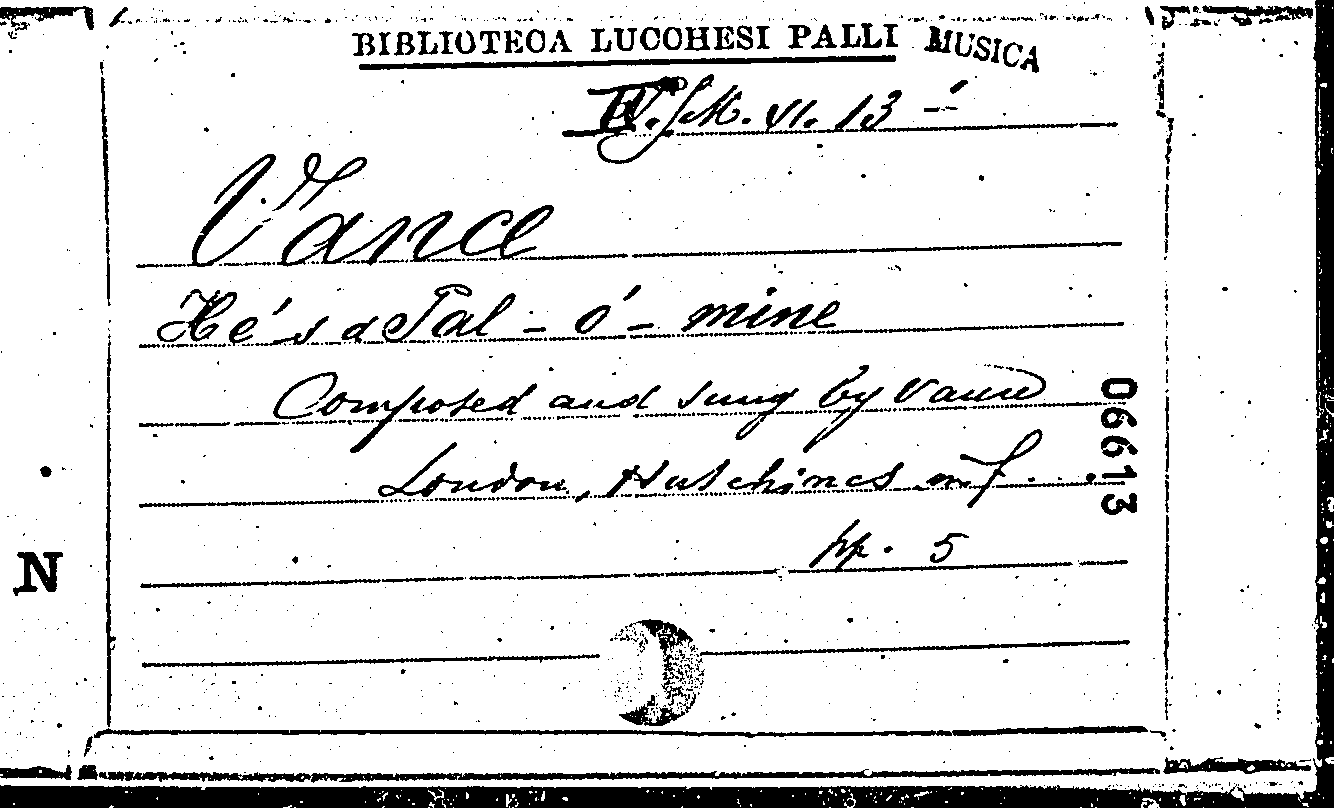 BIBLIOTECA LUCCHESI PALLI MUSICA
IV. M. VI. 13
Vance
He's a Pal - o' - mine
Composed and sung by Vance
London, Hutchines
pp. 5
06613
N